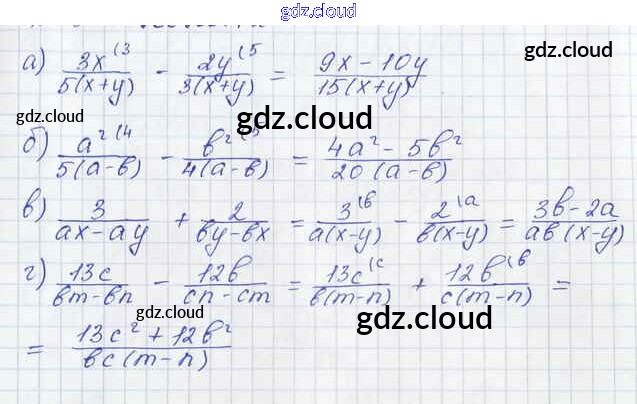 gdz.cloud
а) 3x(3 / 5(x+y) - 2y(5 / 3(x+y) = 9x-10y / 15(x+y)
gdz.cloud
gdz.cloud
gdz.cloud
б) a²(4 / 5(a-в) - в²(5 / 4(a-в) = 4a²-5в² / 20(a-в)
gdz.cloud
в) 3 / ax-ay + 2 / вy-вx = 3(в / a(x-y) - 2(a / в(x-y) = 3в-2a / aв(x-y)
г) 13c / вm-вn - 12в / cn-cm = 13c(c / в(m-n) + 12в(в / c(m-n) =
gdz.cloud
gdz.cloud
= 13c²+12в² / вc(m-n)
gdz.cloud